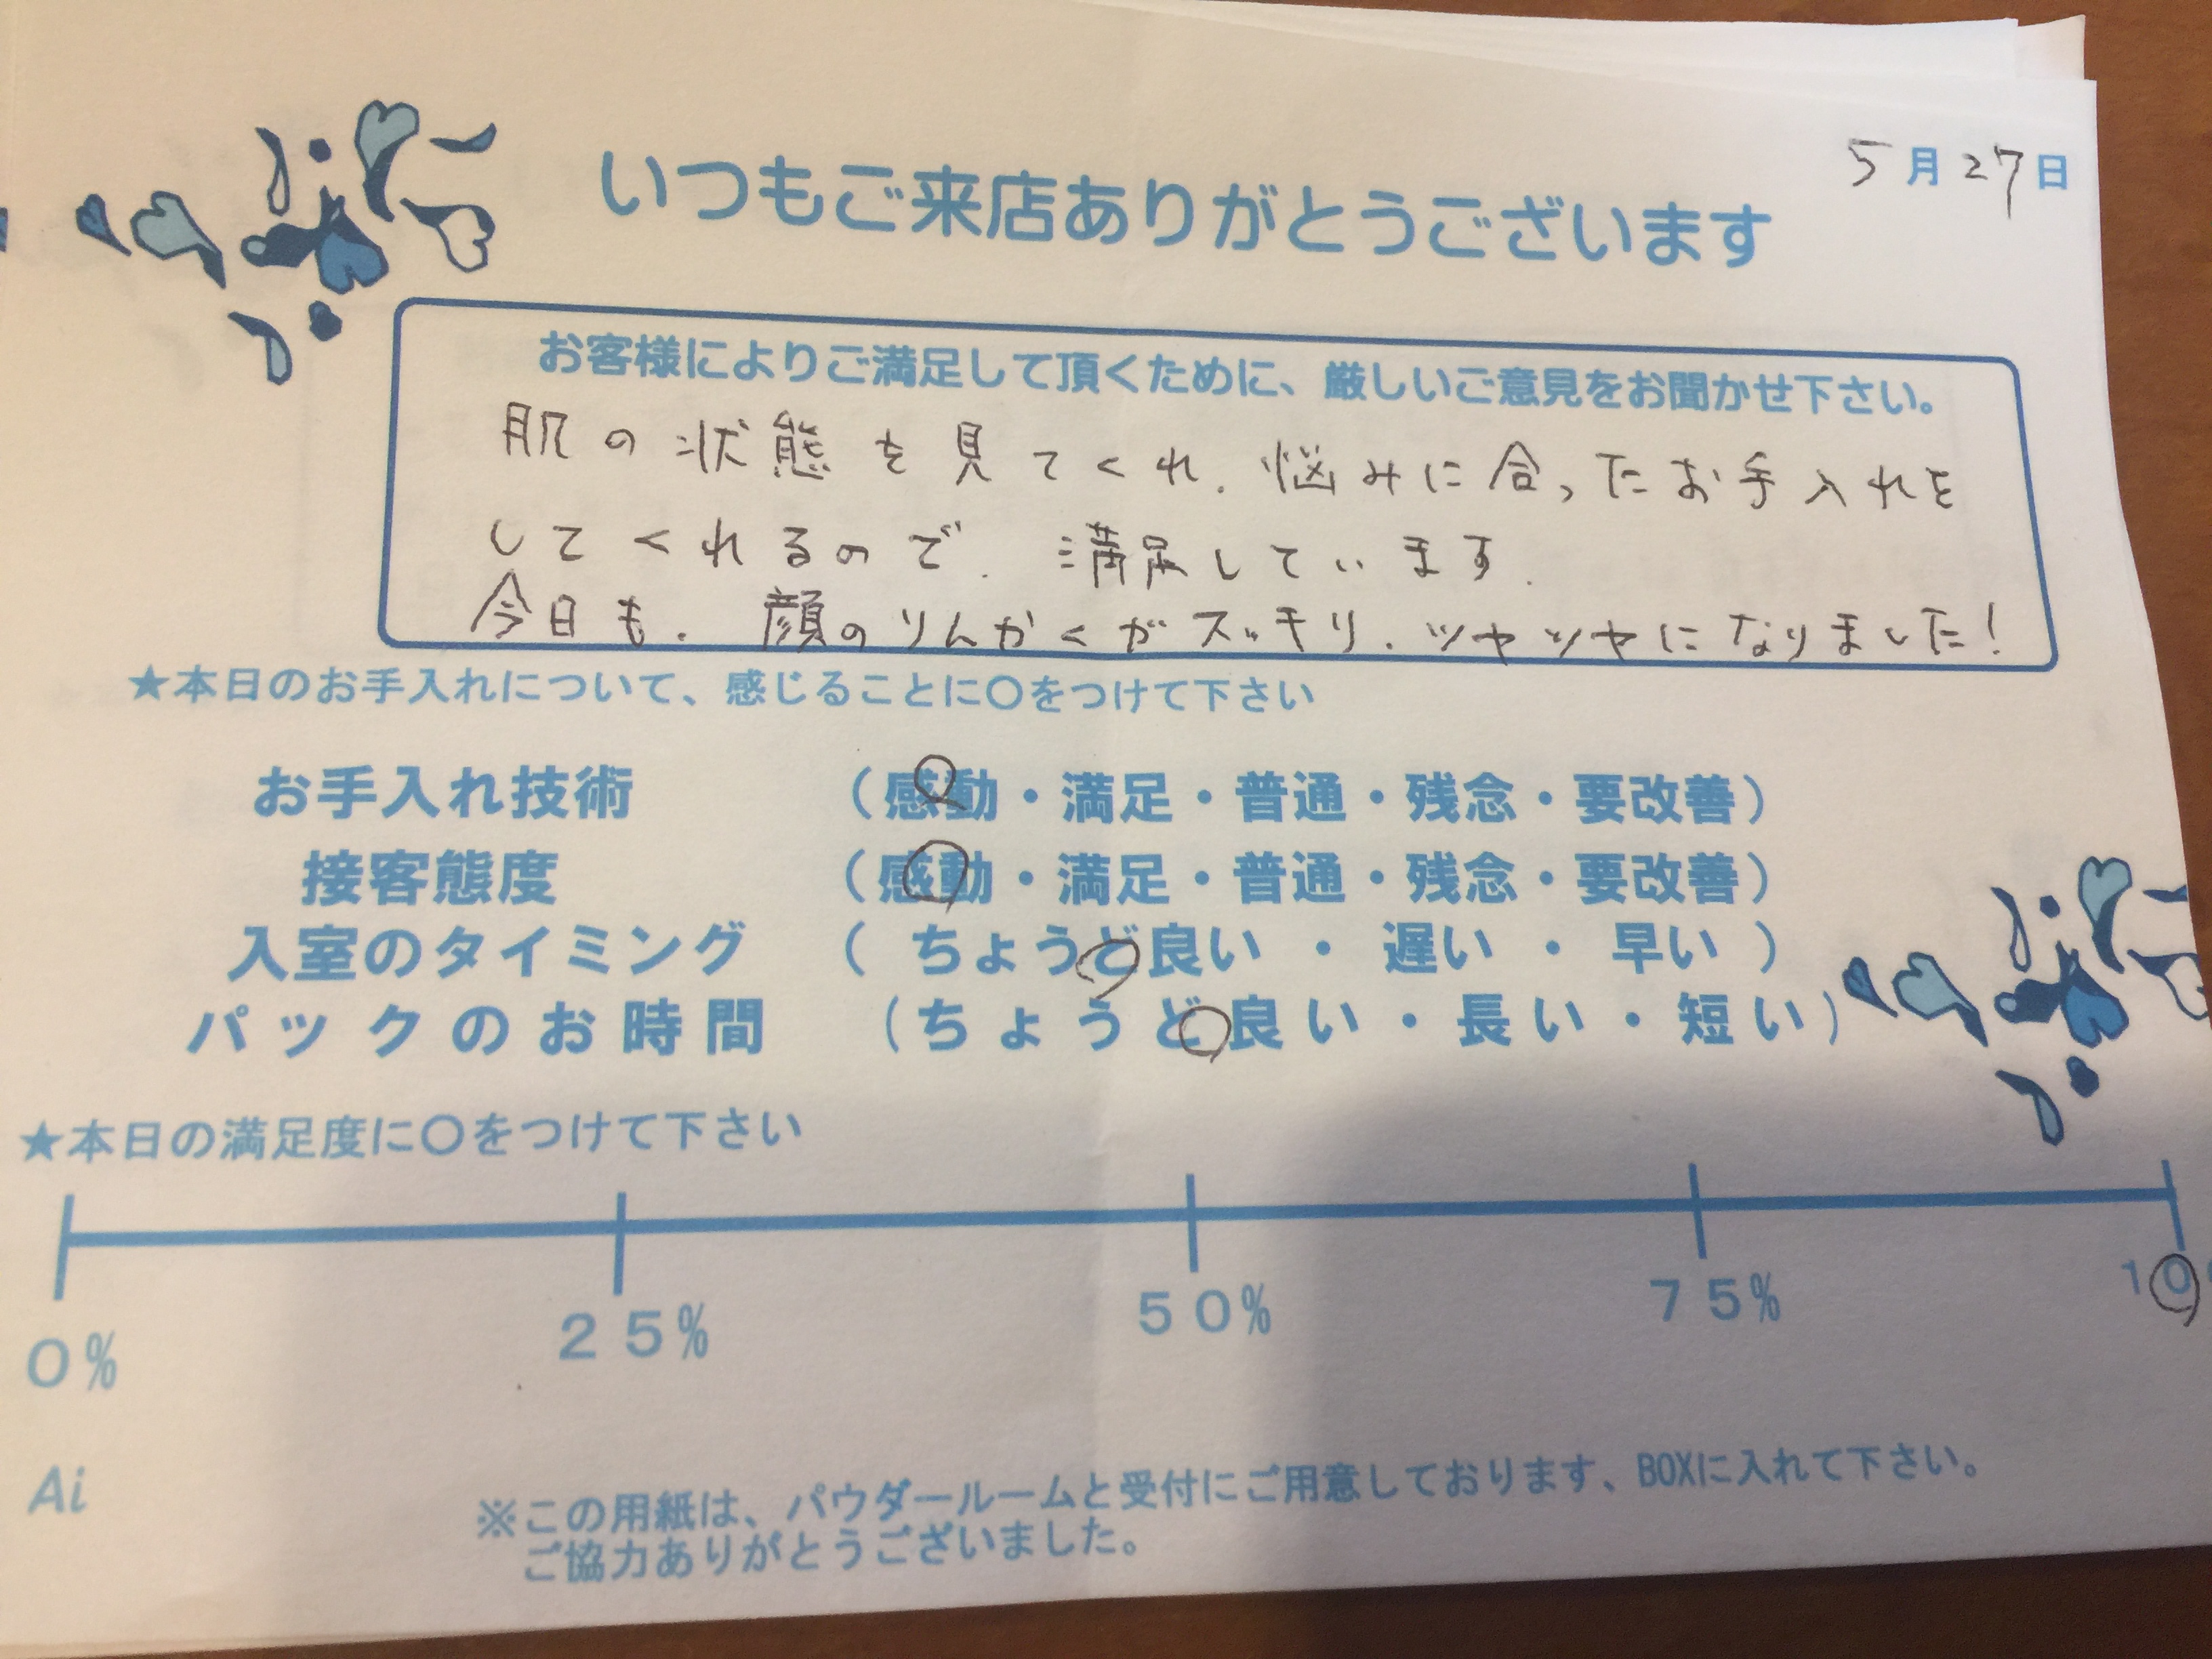 5月27日
いつもご来店ありがとうございます
お客様によりご満足して頂くために、厳しいご意見をお聞かせ下さい。
肌の状態を見てくれ、悩みに合ったお手入れを
してくれるので、満足しています。
今日も、顔のりんかくがスッキリ、ツヤツヤになりました!
★本日のお手入れについて、感じることに〇をつけて下さい
お手入れ技術 (感動・満足・普通・残念・要改善)
接客態度 (感動・満足・普通・残念・要改善)
入室のタイミング ( ちょうど良い ・ 遅い ・ 早い )
パックのお時間 (ちょうど良い・長い・短い)
★本日の満足度に〇をつけて下さい
0% 25% 50% 75% 10
Ai
※この用紙は、パウダールームと受付にご用意しております、BOXに入れて下さい。
ご協力ありがとうございました。